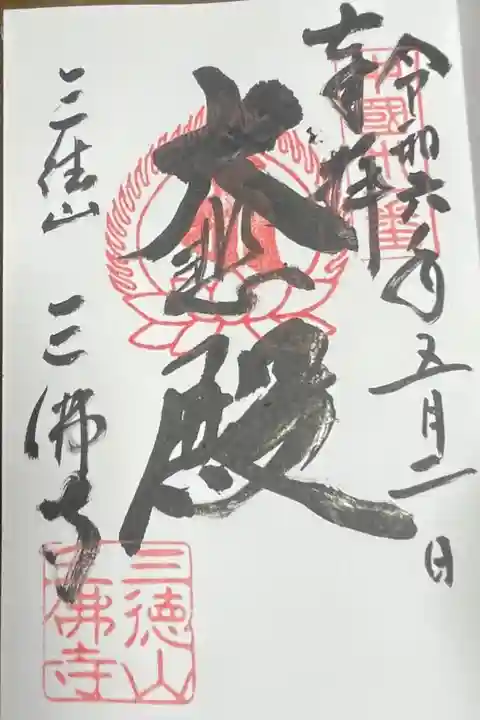 令和六年五月二日
奉拝
大悲殿
三徳山 三佛寺
三徳山
三佛寺